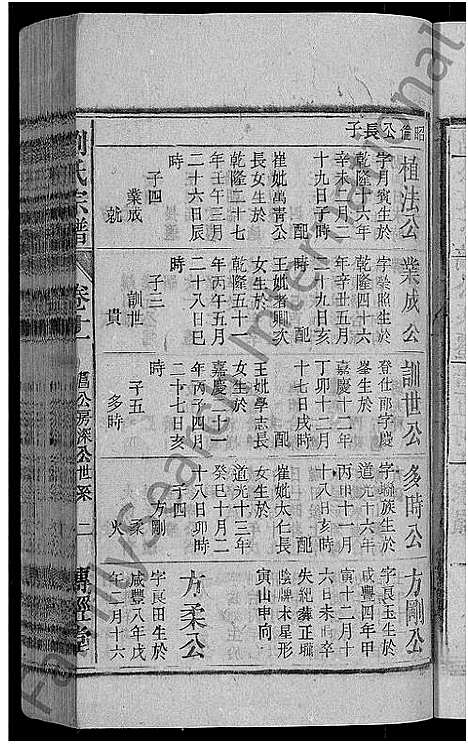 昭倉公長子
植法公
字月賓生於
乾隆十六年
辛未二月二
十九日子時
配
崔妣萬青公
長女生於
乾隆二十七
年壬午三月
二十六日辰
時
子四
業成
就
業成公
字榮照生於
乾隆四十六
年辛丑五月
二十九日亥
時 配
王妣者卿次
女生於
乾隆五十一
年丙午五月
二十八日巳
時
子三
訓世
貫
訓世公
登仕郎字慶
峯生於
嘉慶十二年
丁卯十二月
十七日戌時
配
王妣學志長
女生於
嘉慶二十一
年丙子四月
二十七日亥
時
子五
多時
多時公
字錦族生於
道光十六年
丙申十一月
十八日亥時
配
崔妣太仁長
女生於
道光十三年
癸巳十月二
十八日卯時
子四 方剛
柔
火
方剛公
字長玉生於
咸豐四年甲
寅十二月十
六日未時卒
失紀葬正壩
陰牌木星形
寅山申向
方柔公
字長田生於
咸豐八年戊
午二月十六
劉氏宗譜
卷十一
公房深公世系
二
傳經堂
FamilySearch International